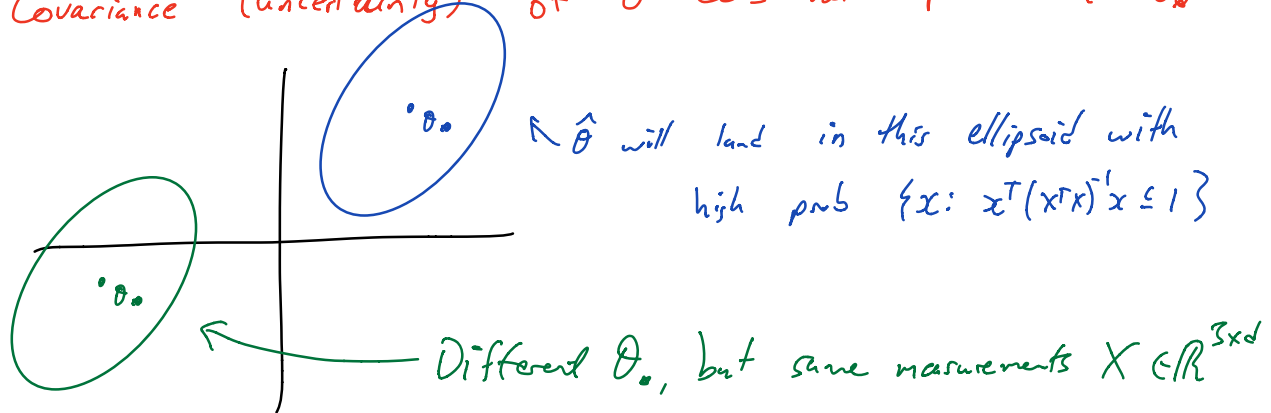 Covariance (uncertainty) of
θ.
θ̂ will land in this ellipsoid with
high prob {x: xᵀ(XᵀX)⁻¹x ≤ 1}
θ.
Different θ., but same measurements X ∈ ℝ³ˣᵈ